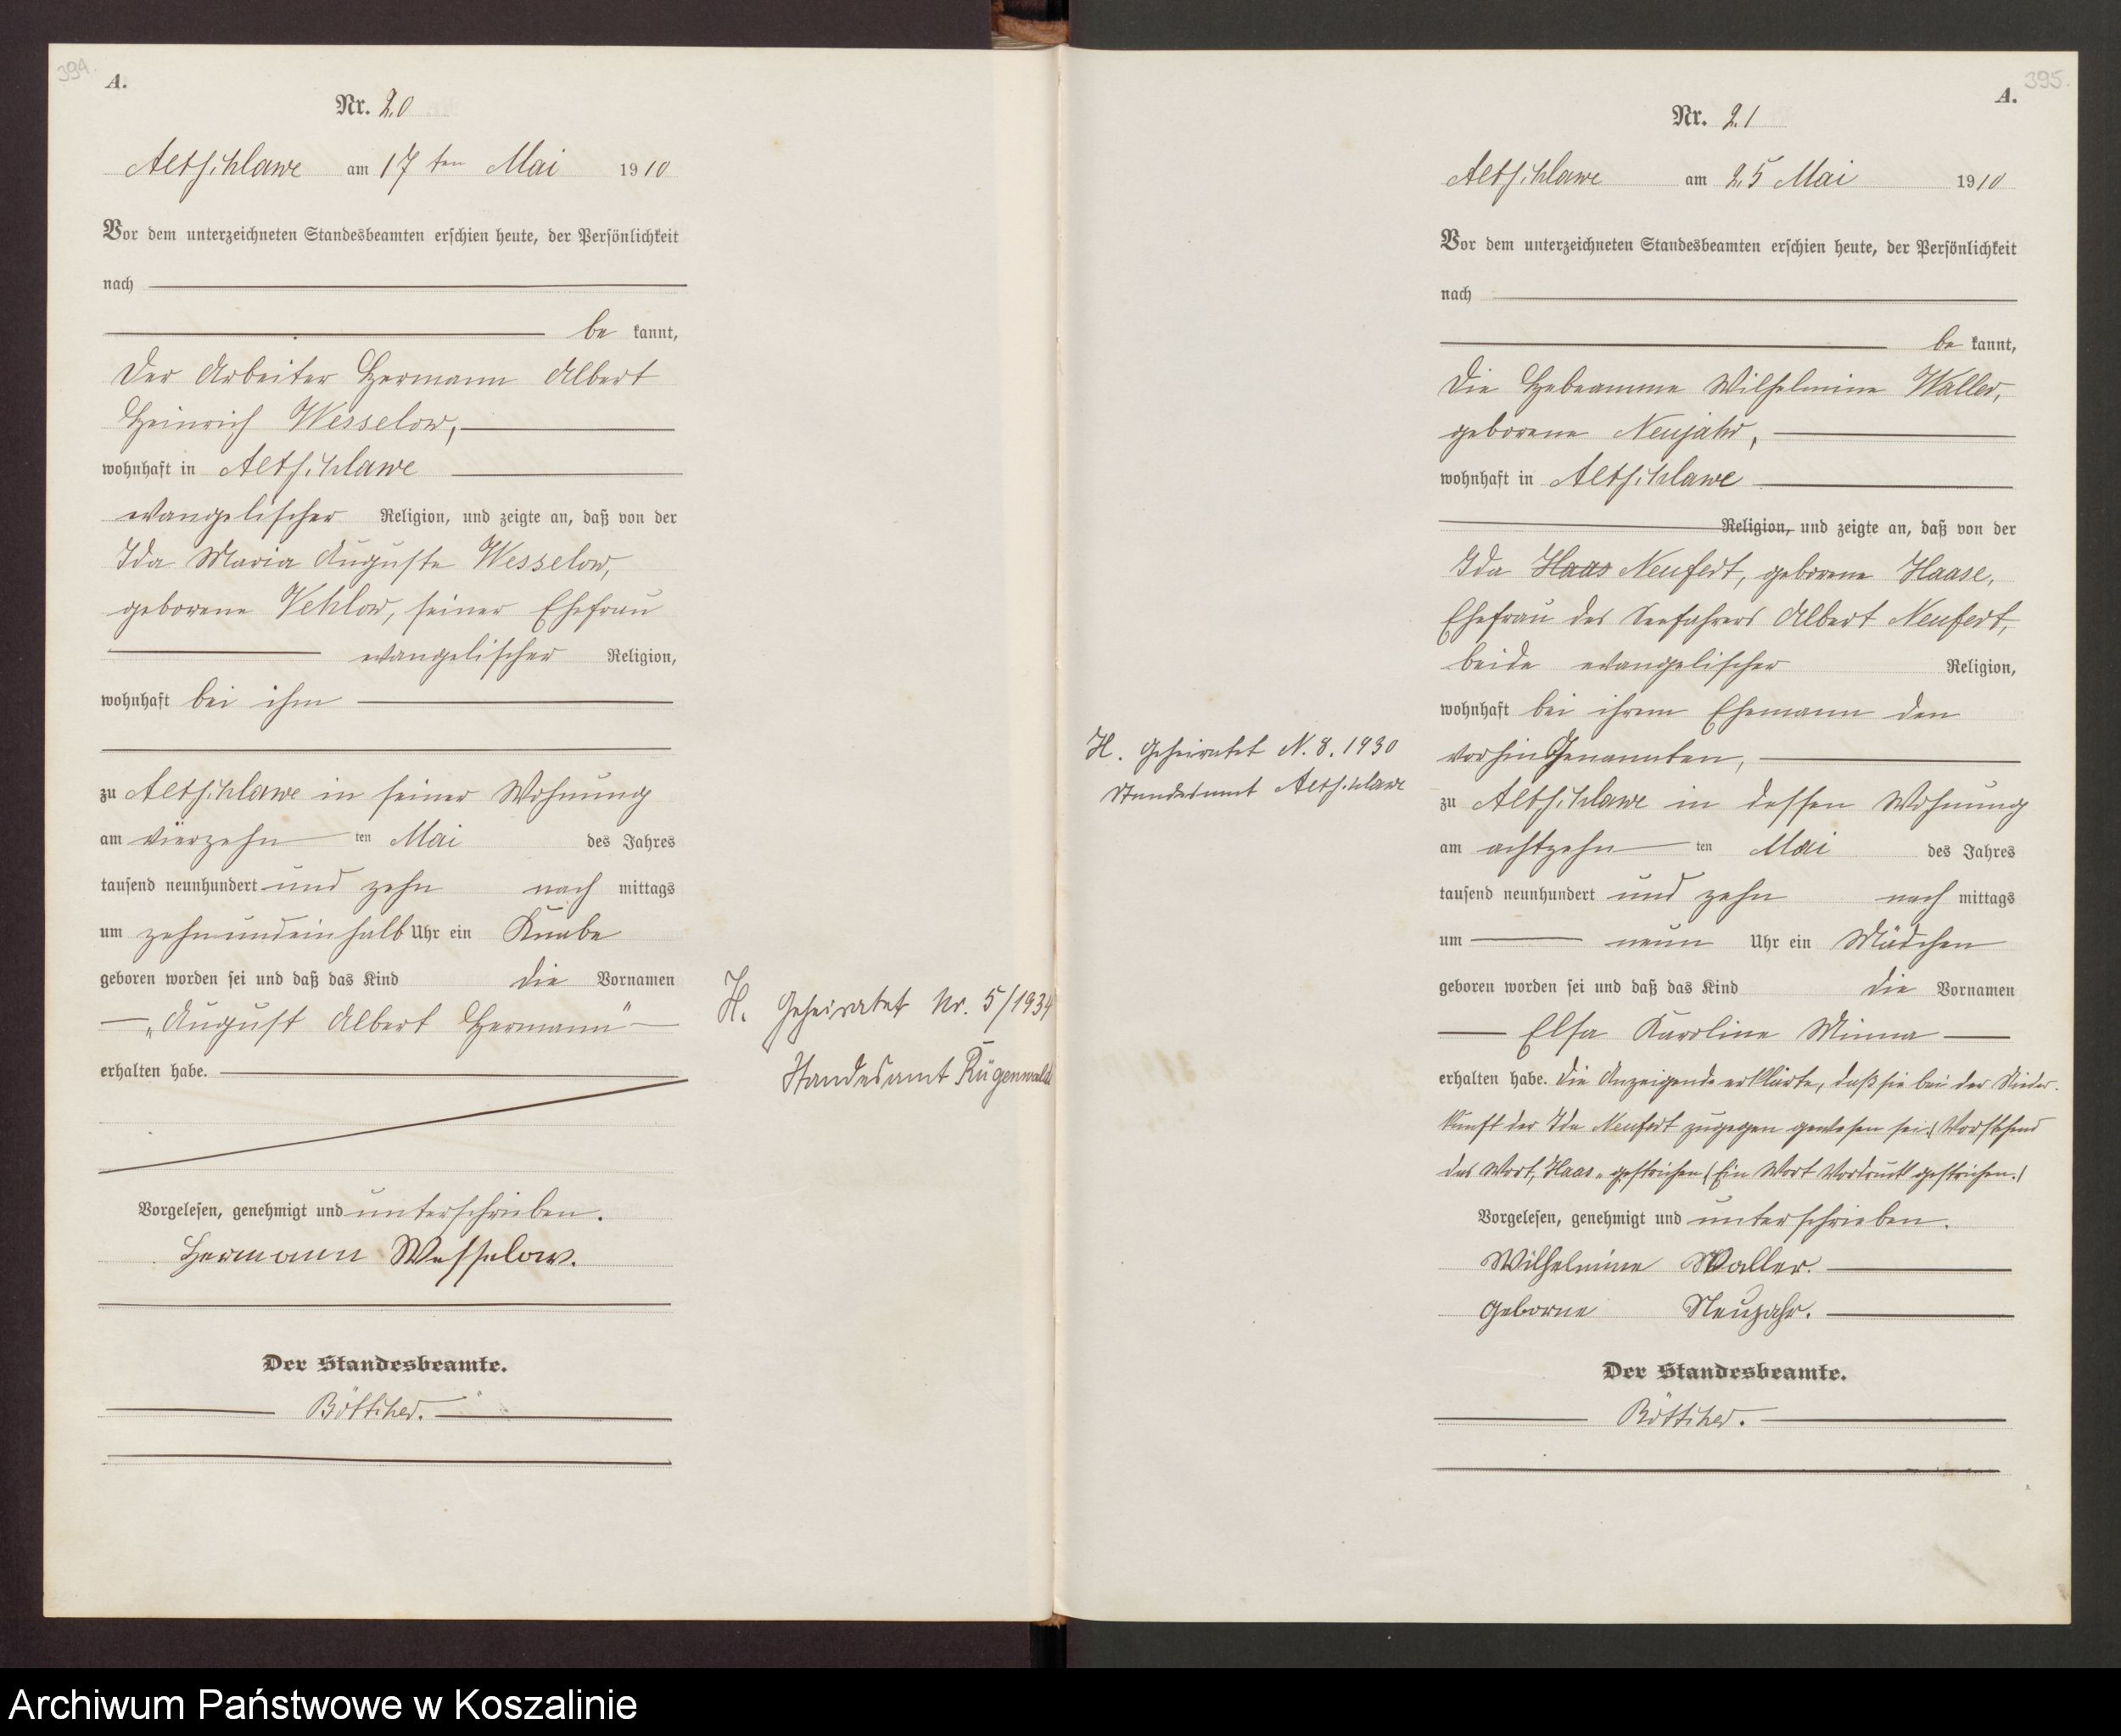 394.
A.
Nr. 20
Altschlawe am 17 ten Mai 1910
Vor dem unterzeichneten Standesbeamten erschien heute, der Persönlichkeit
nach
be kannt,
der Arbeiter Hermann Albert
Heinrich Wesselow,
wohnhaft in Altschlawe
evangelischer Religion, und zeigte an, daß von der
Ida Maria Auguste Wesselow,
geborene Vehlow, seiner Ehefrau
evangelischer Religion,
wohnhaft bei ihm
zu Altschlawe in seiner Wohnung
am vierzehn ten Mai des Jahres
tausend neunhundert und zehn nach mittags
um zehnundeinhalb Uhr ein Knabe
geboren worden sei und daß das Kind die Vornamen
„August Albert Hermann"
erhalten habe.
Vorgelesen, genehmigt und unterschrieben.
Hermann Wesselow.
Der Standesbeamte.
Böttcher.
H. Geheiratet Nr. 5/1934
Standesamt Rügenwalde
395.
A.
Nr. 21
Altschlawe am 25 Mai 1910
Vor dem unterzeichneten Standesbeamten erschien heute, der Persönlichkeit
nach
be kannt,
die Hebeamme Wilhelmine Waller,
geborene Neujahr,
wohnhaft in Altschlawe
Religion, und zeigte an, daß von der
Ida Haas Neufert, geborene Haase,
Ehefrau des Seefahrers Albert Neufert,
beide evangelischer Religion,
wohnhaft bei ihrem Ehemann den
vorhin Genannten,
zu Altschlawe in dessen Wohnung
am achtzehn ten Mai des Jahres
tausend neunhundert und zehn nach mittags
um neun Uhr ein Mädchen
geboren worden sei und daß das Kind die Vornamen
Elsa Karoline Minna
erhalten habe. Die Anzeigende erklärte, daß sie bei der Nieder-
kunft der Ida Neufert zugegen gewesen sei. (Vorstehend
das Wort „Haas" gestrichen (Ein Wort Vordruck gestrichen.)
Vorgelesen, genehmigt und unterschrieben.
Wilhelmine Waller.
geborne Neujahr.
Der Standesbeamte.
Böttcher.
H. Geheiratet N. 8. 1930
Standesamt Altschlawe
Archiwum Państwowe w Koszalinie